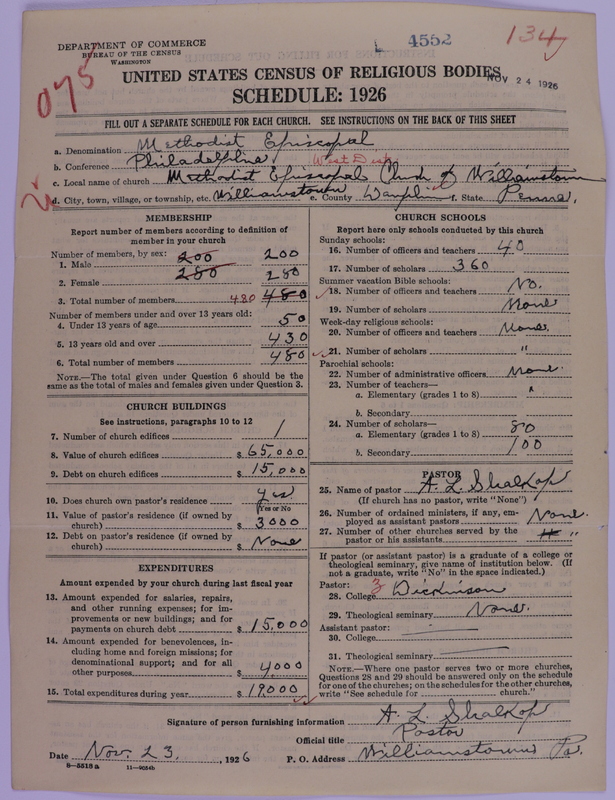 DEPARTMENT OF COMMERCE
BUREAU OF THE CENSUS
WASHINGTON
4552
134
075
NOV 24 1926
UNITED STATES CENSUS OF RELIGIOUS BODIES
SCHEDULE: 1926
FILL OUT A SEPARATE SCHEDULE FOR EACH CHURCH. SEE INSTRUCTIONS ON THE BACK OF THIS SHEET
a. Denomination Methodist Episcopal
b. Conference Philadelphia West Dist
c. Local name of church Methodist Episcopal Church of Williamstown
d. City, town, village, or township, etc. Williamstown e. County Dauphin f. State Penna.
MEMBERSHIP
Report number of members according to definition of
member in your church
Number of members, by sex:
1. Male 200 200
2. Female 280 280
3. Total number of members 480 480
Number of members under and over 13 years old:
4. Under 13 years of age 50
5. 13 years old and over 430
6. Total number of members 480
NOTE.—The total given under Question 6 should be the
same as the total of males and females given under Question 3.
CHURCH BUILDINGS
See instructions, paragraphs 10 to 12
7. Number of church edifices 1
8. Value of church edifices $ 65,000
9. Debt on church edifices $ 15,000
10. Does church own pastor's residence yes
(Yes or No)
11. Value of pastor's residence (if owned by
church) $ 3000
12. Debt on pastor's residence (if owned by
church) $ None
EXPENDITURES
Amount expended by your church during last fiscal year
13. Amount expended for salaries, repairs,
and other running expenses; for im-
provements or new buildings; and for
payments on church debt $ 15,000
14. Amount expended for benevolences, in-
cluding home and foreign missions; for
denominational support; and for all
other purposes $ 4,000
15. Total expenditures during year $ 19,000
CHURCH SCHOOLS
Report here only schools conducted by this church
Sunday schools:
16. Number of officers and teachers 40
17. Number of scholars 360
Summer vacation Bible schools:
18. Number of officers and teachers No.
19. Number of scholars None
Week-day religious schools:
20. Number of officers and teachers None.
21. Number of scholars "
Parochial schools:
22. Number of administrative officers None.
23. Number of teachers—
a. Elementary (grades 1 to 8) "
b. Secondary
24. Number of scholars—
a. Elementary (grades 1 to 8) 80
b. Secondary 100
PASTOR
25. Name of pastor A. L. Shalkop
(If church has no pastor, write "None")
26. Number of ordained ministers, if any, em-
ployed as assistant pastors None.
27. Number of other churches served by the
pastor or his assistants "
If pastor (or assistant pastor) is a graduate of a college or
theological seminary, give name of institution below. (If
not a graduate, write "No" in the space indicated.)
Pastor:
28. College 3 Dickinson
29. Theological seminary None.
Assistant pastor:
30. College
31. Theological seminary
NOTE.—Where one pastor serves two or more churches,
Questions 28 and 29 should be answered only on the schedule
for one of the churches; on the schedules for the other churches,
write "See schedule for church."
Signature of person furnishing information A. L. Shalkop
Official title Pastor
Date Nov. 23, 1926 P. O. Address Williamstown Pa.
8—5518a 11—9054b